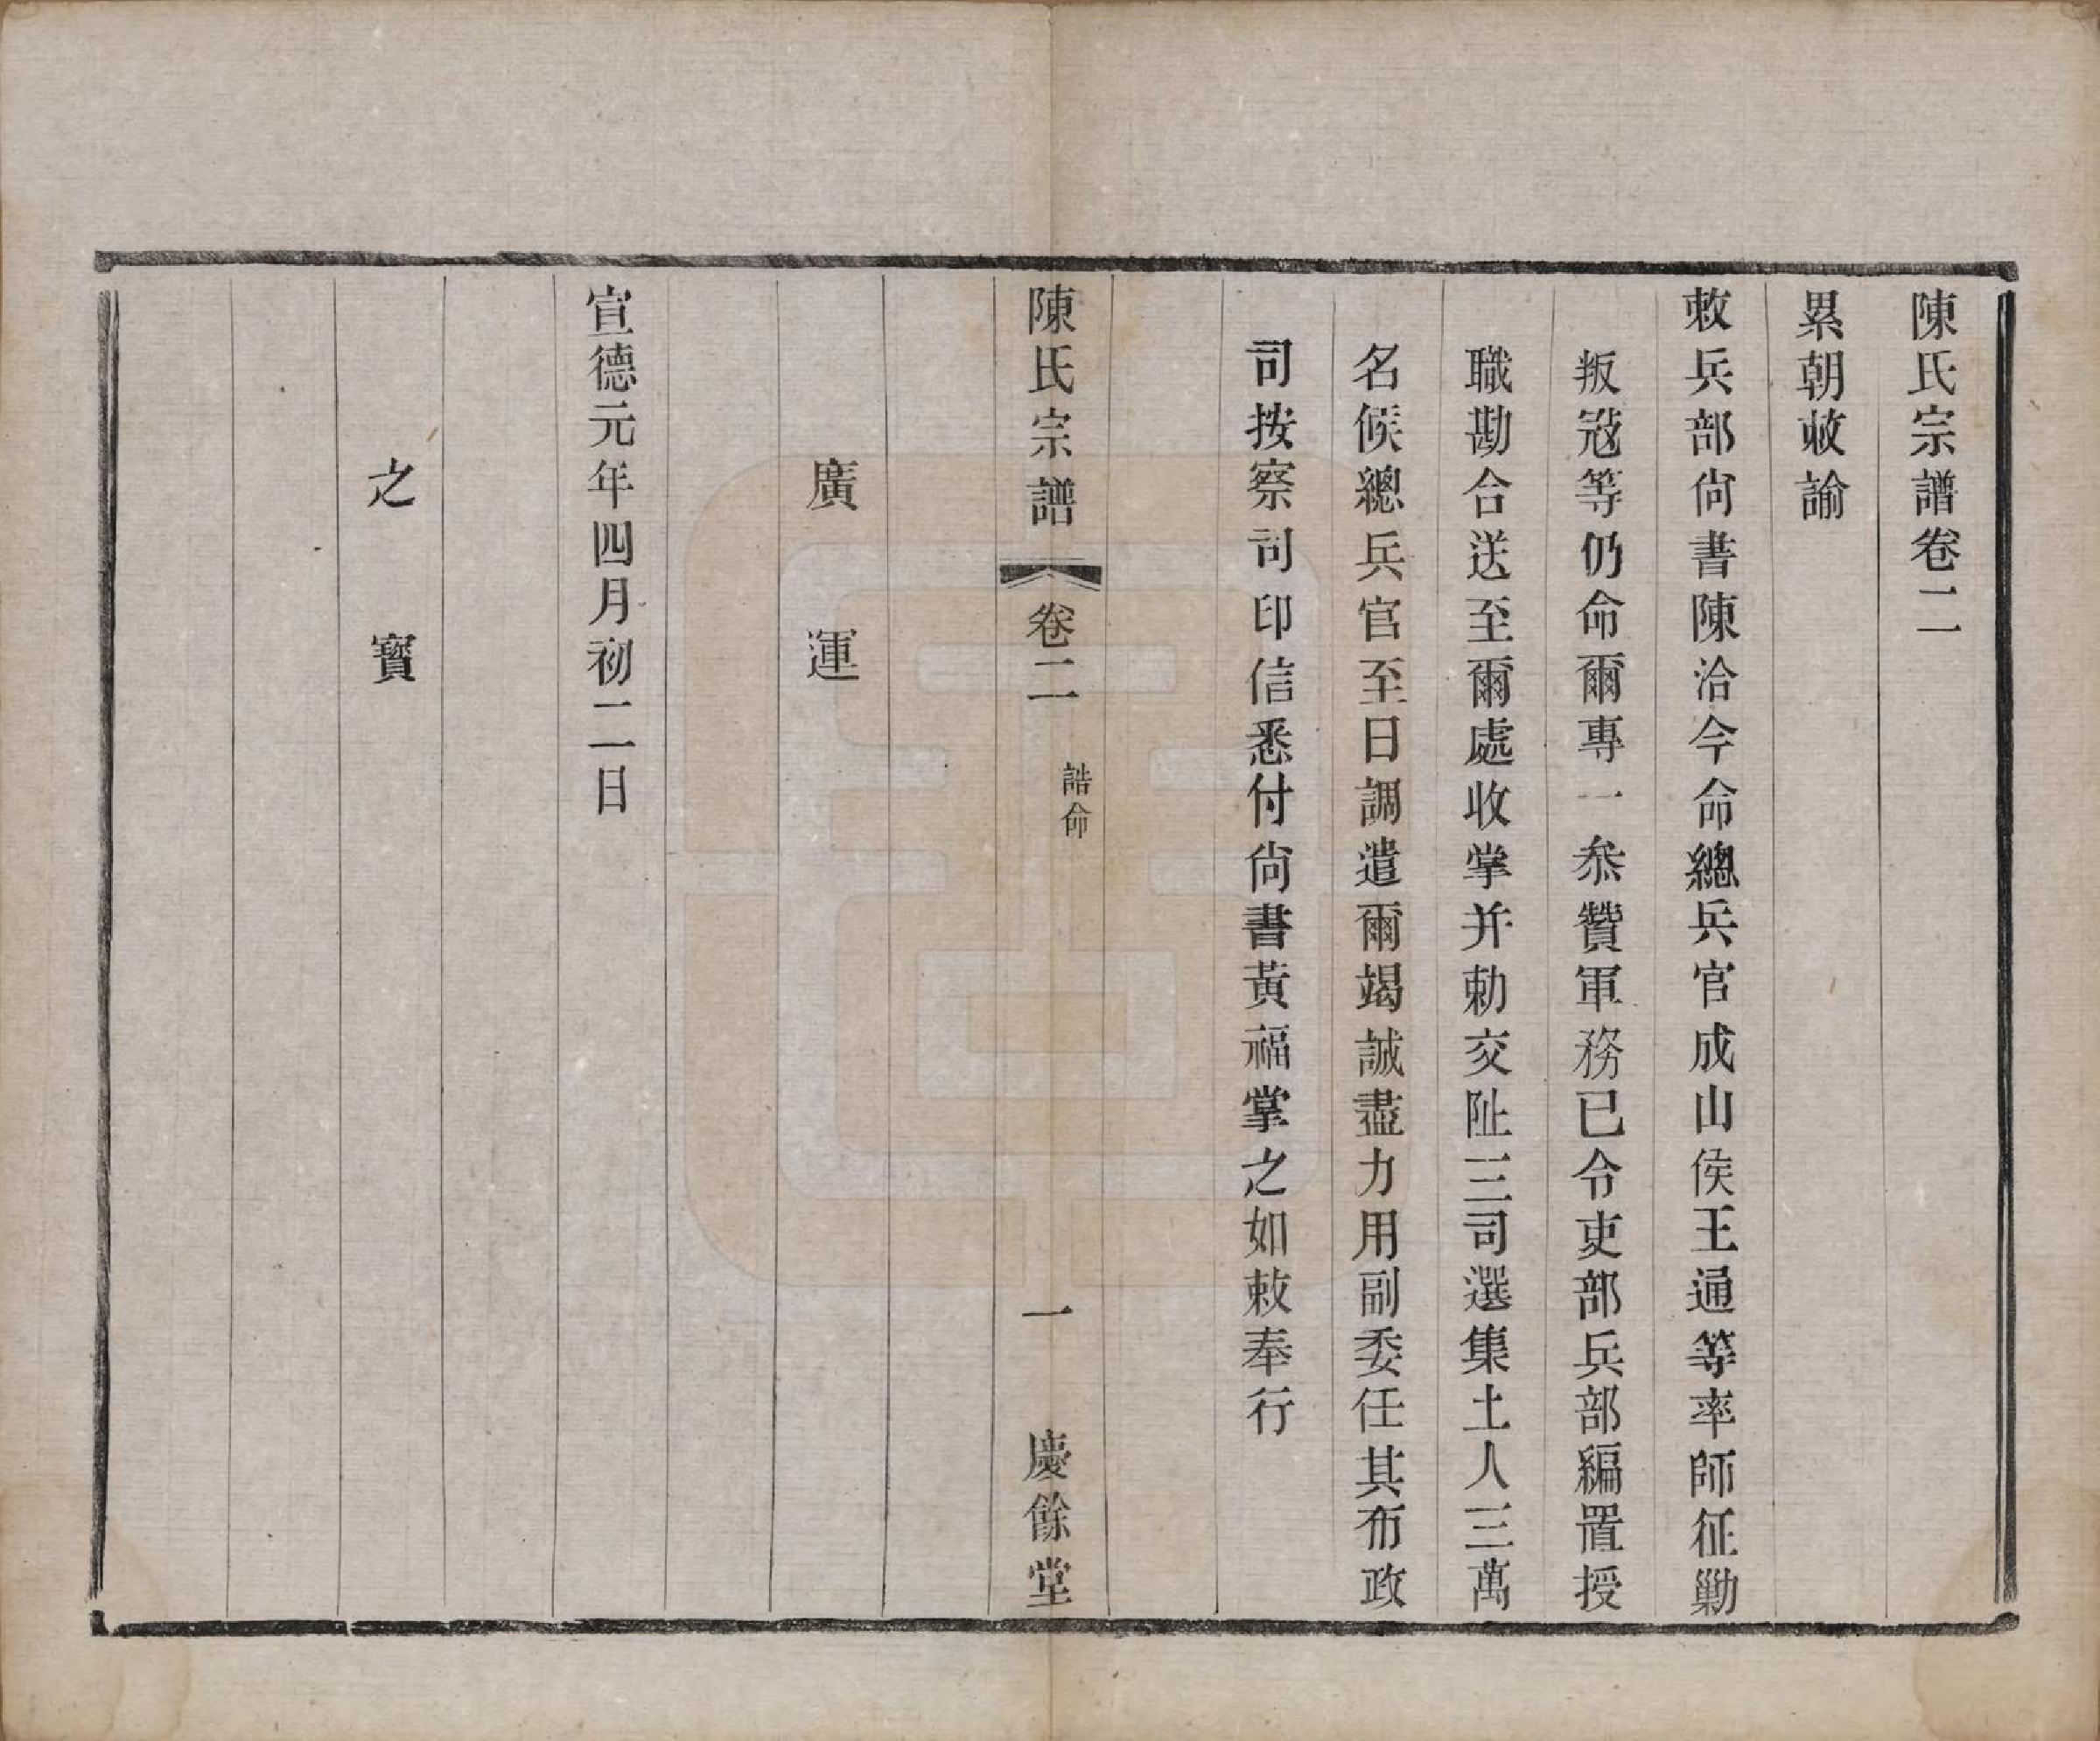 陳氏宗譜卷二
累朝敕諭
敕兵部尙書陳洽今命總兵官成山侯王通等率師征勦
叛宼等仍命爾專一叅贊軍務已令吏部兵部編置授
職勘合送至爾處收掌并勅交阯三司選集土人三萬
名候總兵官至日調遣爾竭誠盡力用副委任其布政
司按察司印信悉付尙書黃福掌之如敕奉行
陳氏宗譜 卷二 誥命 一 慶餘堂
廣運
宣德元年四月初二日
之寳